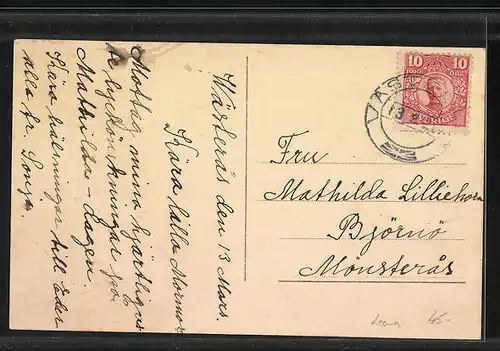 Wästerås den 13 Mars.
Kära lilla Mormor
Mottag mina hjärtligas
te lyckönskningar på
Mathilda-dagen
Kära hälsningar till Eder
alla fr. Sonja.
10 10
ÖRE ÖRE
SVERIGE
VÄSTE
13
Fru
Mathilda Lilliehorn
Björnö
Mönsterås
45-